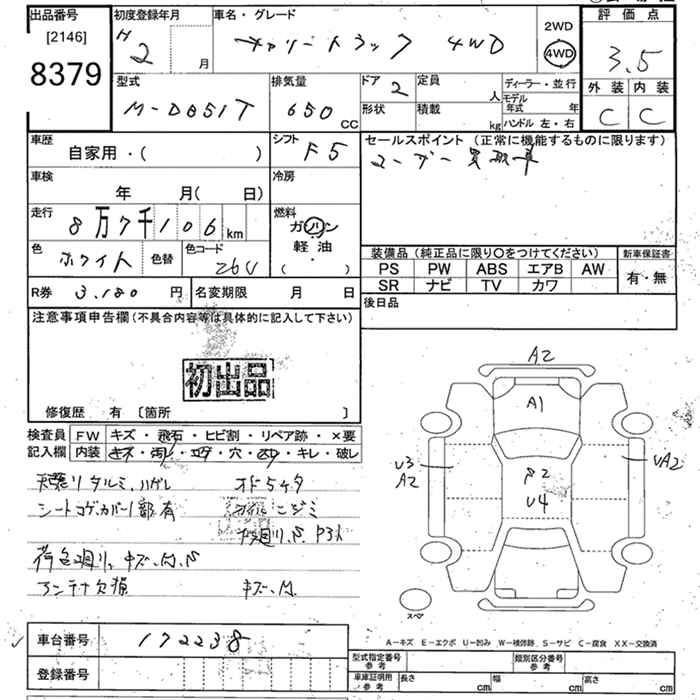 出品番号 初度登録年月 車名・グレード 2WD 評価点
[2146] H 2 月 キャリートラック 4WD 4WD 3.5
8379
型式 排気量 ドア 2 定員 人 ディーラー・並行 外装 内装
M-DB51T 650 CC 形状 積載 kg モデル年式 年 C C
ハンドル 左・右
車歴 シフト セールスポイント (正常に機能するものに限ります)
自家用・( ) F5 ユーザー買取車
車検 冷房
年 月( 日)
走行 燃料
8万7千106km ガソリン
色 色替 色コード 軽油・
ホワイト 26U ( )
装備品 (純正品に限り○をつけてください) 新車保証書
PS PW ABS エアB AW 有・無
SR ナビ TV カワ
R券 3,180 円 名変期限 月 日 後日品
注意事項申告欄 (不具合内容等は具体的に記入して下さい)
初出品
修復歴 有 [箇所 ]
検査員 FW キズ・飛石・ヒビ割・リペア跡・×要
記入欄 内装 キズ・汚レ・コゲ・穴・スリ・キレ・破レ
天張りタルミ、ハガレ
シートコゲ、カバー1部有
キズ、凹、S
アンテナ欠損 キズ、凹
A2
A1
U3
A2
UA2
U4
スペア
A-キズ E-エクボ U-凹み W-補修跡 S-サビ C-腐食 XX-交換済
車台番号 172238
登録番号
型式指定番号 参考 類別区分番号 参考
車庫証明用 参考 長さ cm 幅 cm 高さ cm